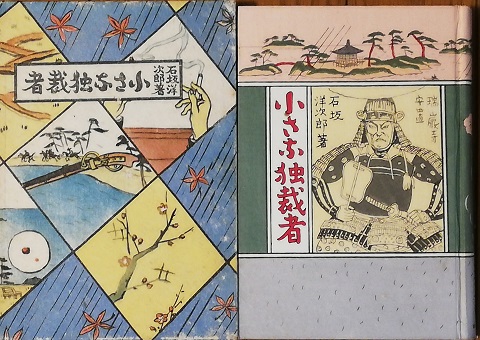 小さな独裁者
石坂洋
次郎著
小さな独裁者
石坂
洋次郎著
瑞巌寺
安置